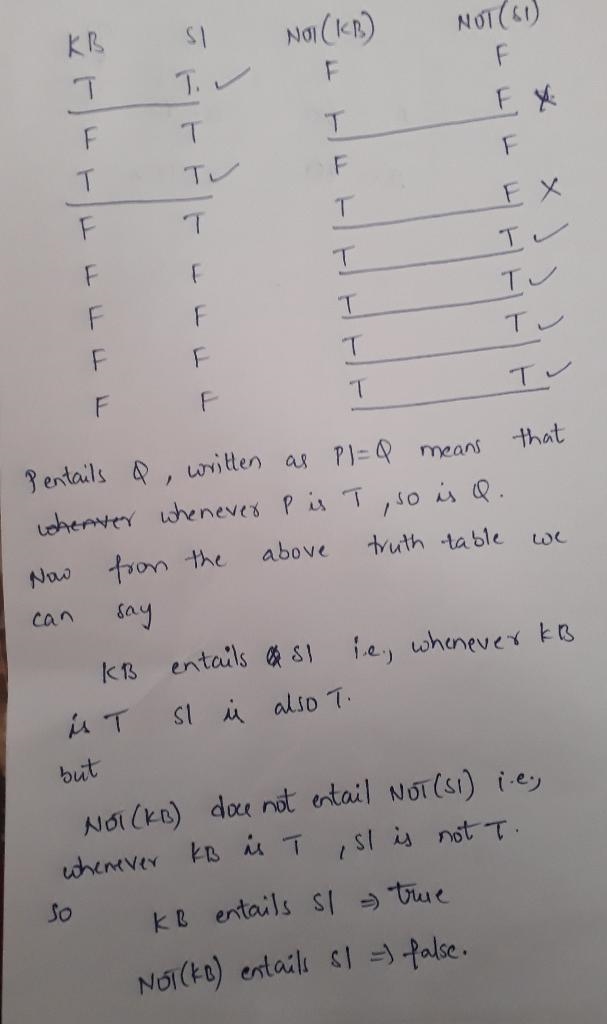 KB S1 NOT(KB) NOT(S1)
T T. ✓ F F
F T T F X
T T ✓ F F
F T T F X
F F T T ✓
F F T T ✓
F F T T ✓
F F T T ✓
P entails Q, written as P|=Q means that
whenever whenever P is T, so is Q.
Now from the above truth table we
can say
KB entails S1 i.e., whenever KB
is T S1 is also T.
but
NOT(KB) doce not entail NOT(S1) i.e.,
whenever KB is T, S1 is not T.
So KB entails S1 ⇒ true
NOT(KB) entails S1 ⇒ false.